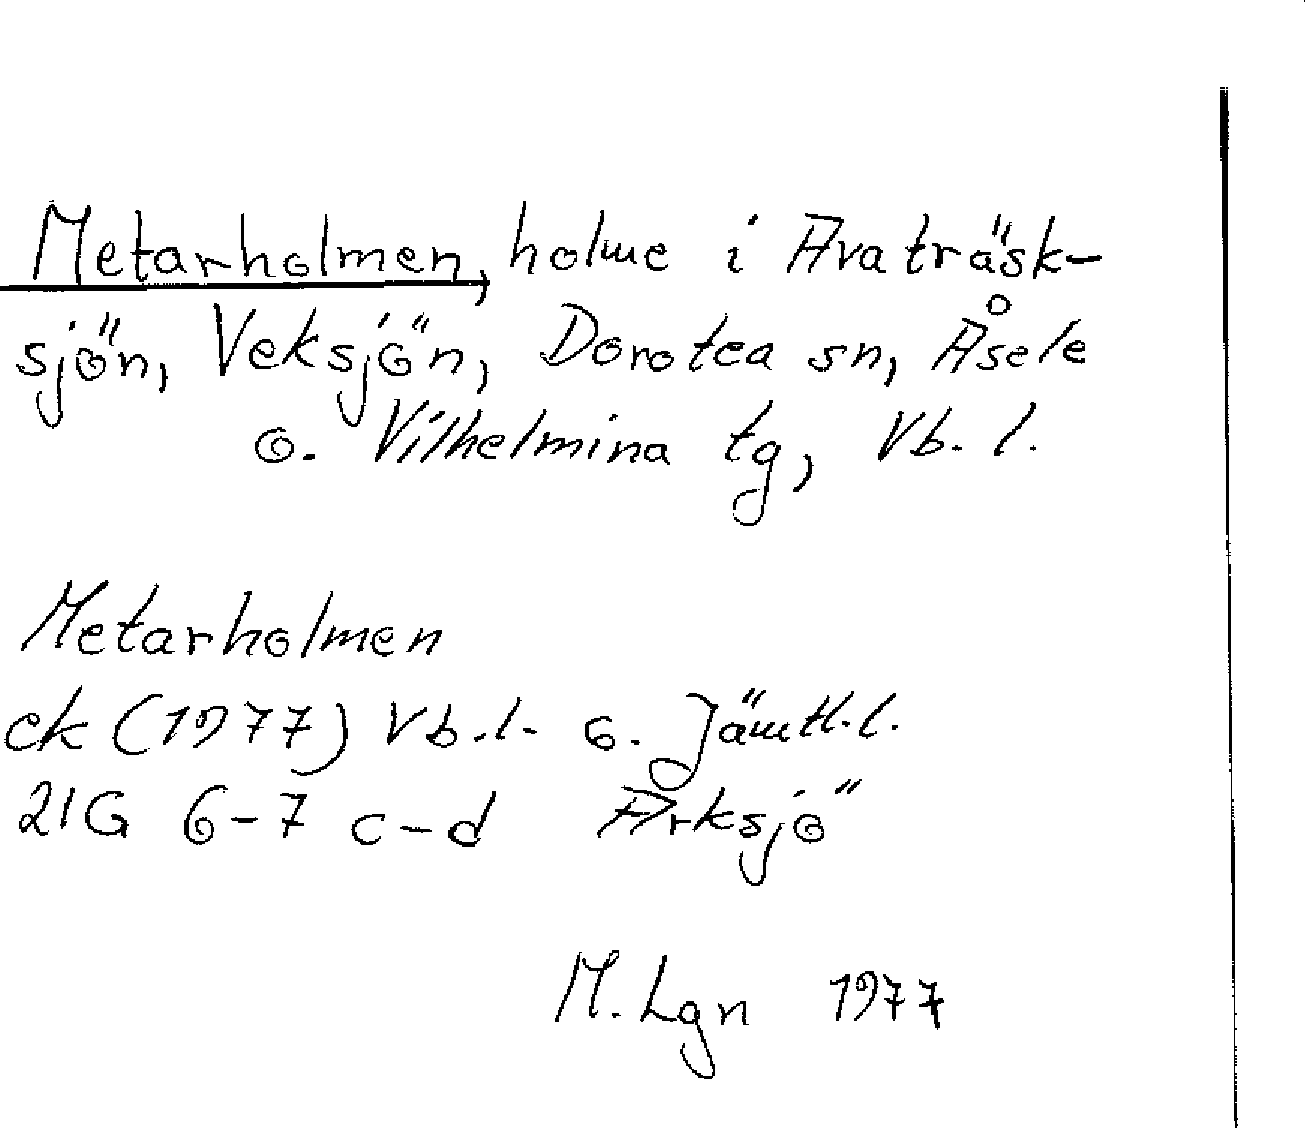 Metarholmen, holme i Avaträsk-
sjön, Veksjön, Dorotea sn, Åsele
o. Vilhelmina tg, Vb. l.
Metarholmen
ek (1977) Vb.l. o. Jämtl.l.
21G 6-7 c-d Arksjö
M. Lgn 1977